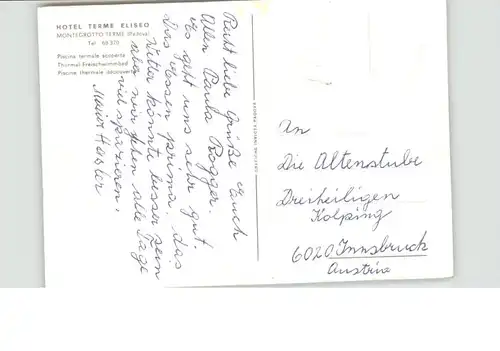 HOTEL TERME ELISEO
MONTEGROTTO TERME (Padova)
Tel. 68 370
Piscina termale scoperta
Thermal-Freischwimmbad
Piscine thermale découverte
Recht liebe Grüße Euch
Allen Paula Rogger.
es geht uns sehr gut.
Das Essen prima, das
Wetter könnte besser sein
aber wir gehen alle Tage
viel spazieren.
An
Die Altenstube
Dreiheiligen
Kolping
6020 Innsbruck
Austria